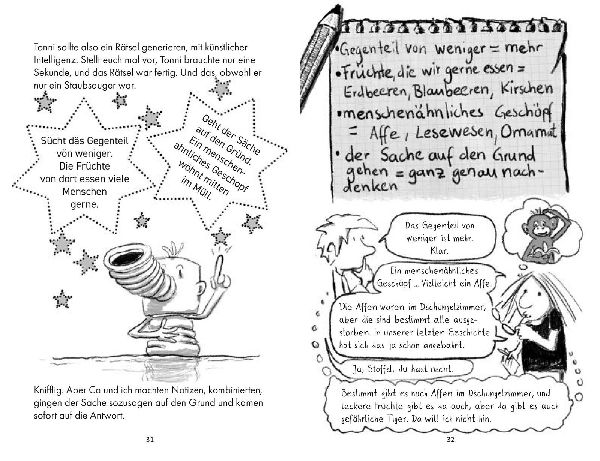 Tonni sollte also ein Rätsel generieren, mit künstlicher
Intelligenz. Stellt euch mal vor, Tonni brauchte nur eine
Sekunde, und das Rätsel war fertig. Und das, obwohl er
nur ein Staubsauger war.
Sucht das Gegenteil
von weniger.
Die Früchte
von dort essen viele
Menschen
gerne.
Geht der Sache
auf den Grund.
Ein menschen-
ähnliches Geschöpf
wohnt mitten
im Müll.
Knifflig. Aber Ca und ich machten Notizen, kombinierten,
gingen der Sache sozusagen auf den Grund und kamen
sofort auf die Antwort.
31
• Gegenteil von weniger = mehr
• Früchte, die wir gerne essen =
Erdbeeren, Blaubeeren, Kirschen
• menschenähnliches Geschöpf
= Affe, Lesewesen, Ornamat
• der Sache auf den Grund
gehen = ganz genau nach-
denken
Das Gegenteil von
weniger ist mehr.
Klar.
Ein menschenähnliches
Geschöpf ... Vielleicht ein Affe
Die Affen waren im Dschungelzimmer,
aber die sind bestimmt alle ausge-
storben. In unserer letzten Geschichte
hat sich das ja schon angebahnt.
Ja, Stoffel, du hast recht.
Bestimmt gibt es noch Affen im Dschungelzimmer, und
leckere Früchte gibt es da auch, aber da gibt es auch
gefährliche Tiger. Da will ich nicht hin.
32